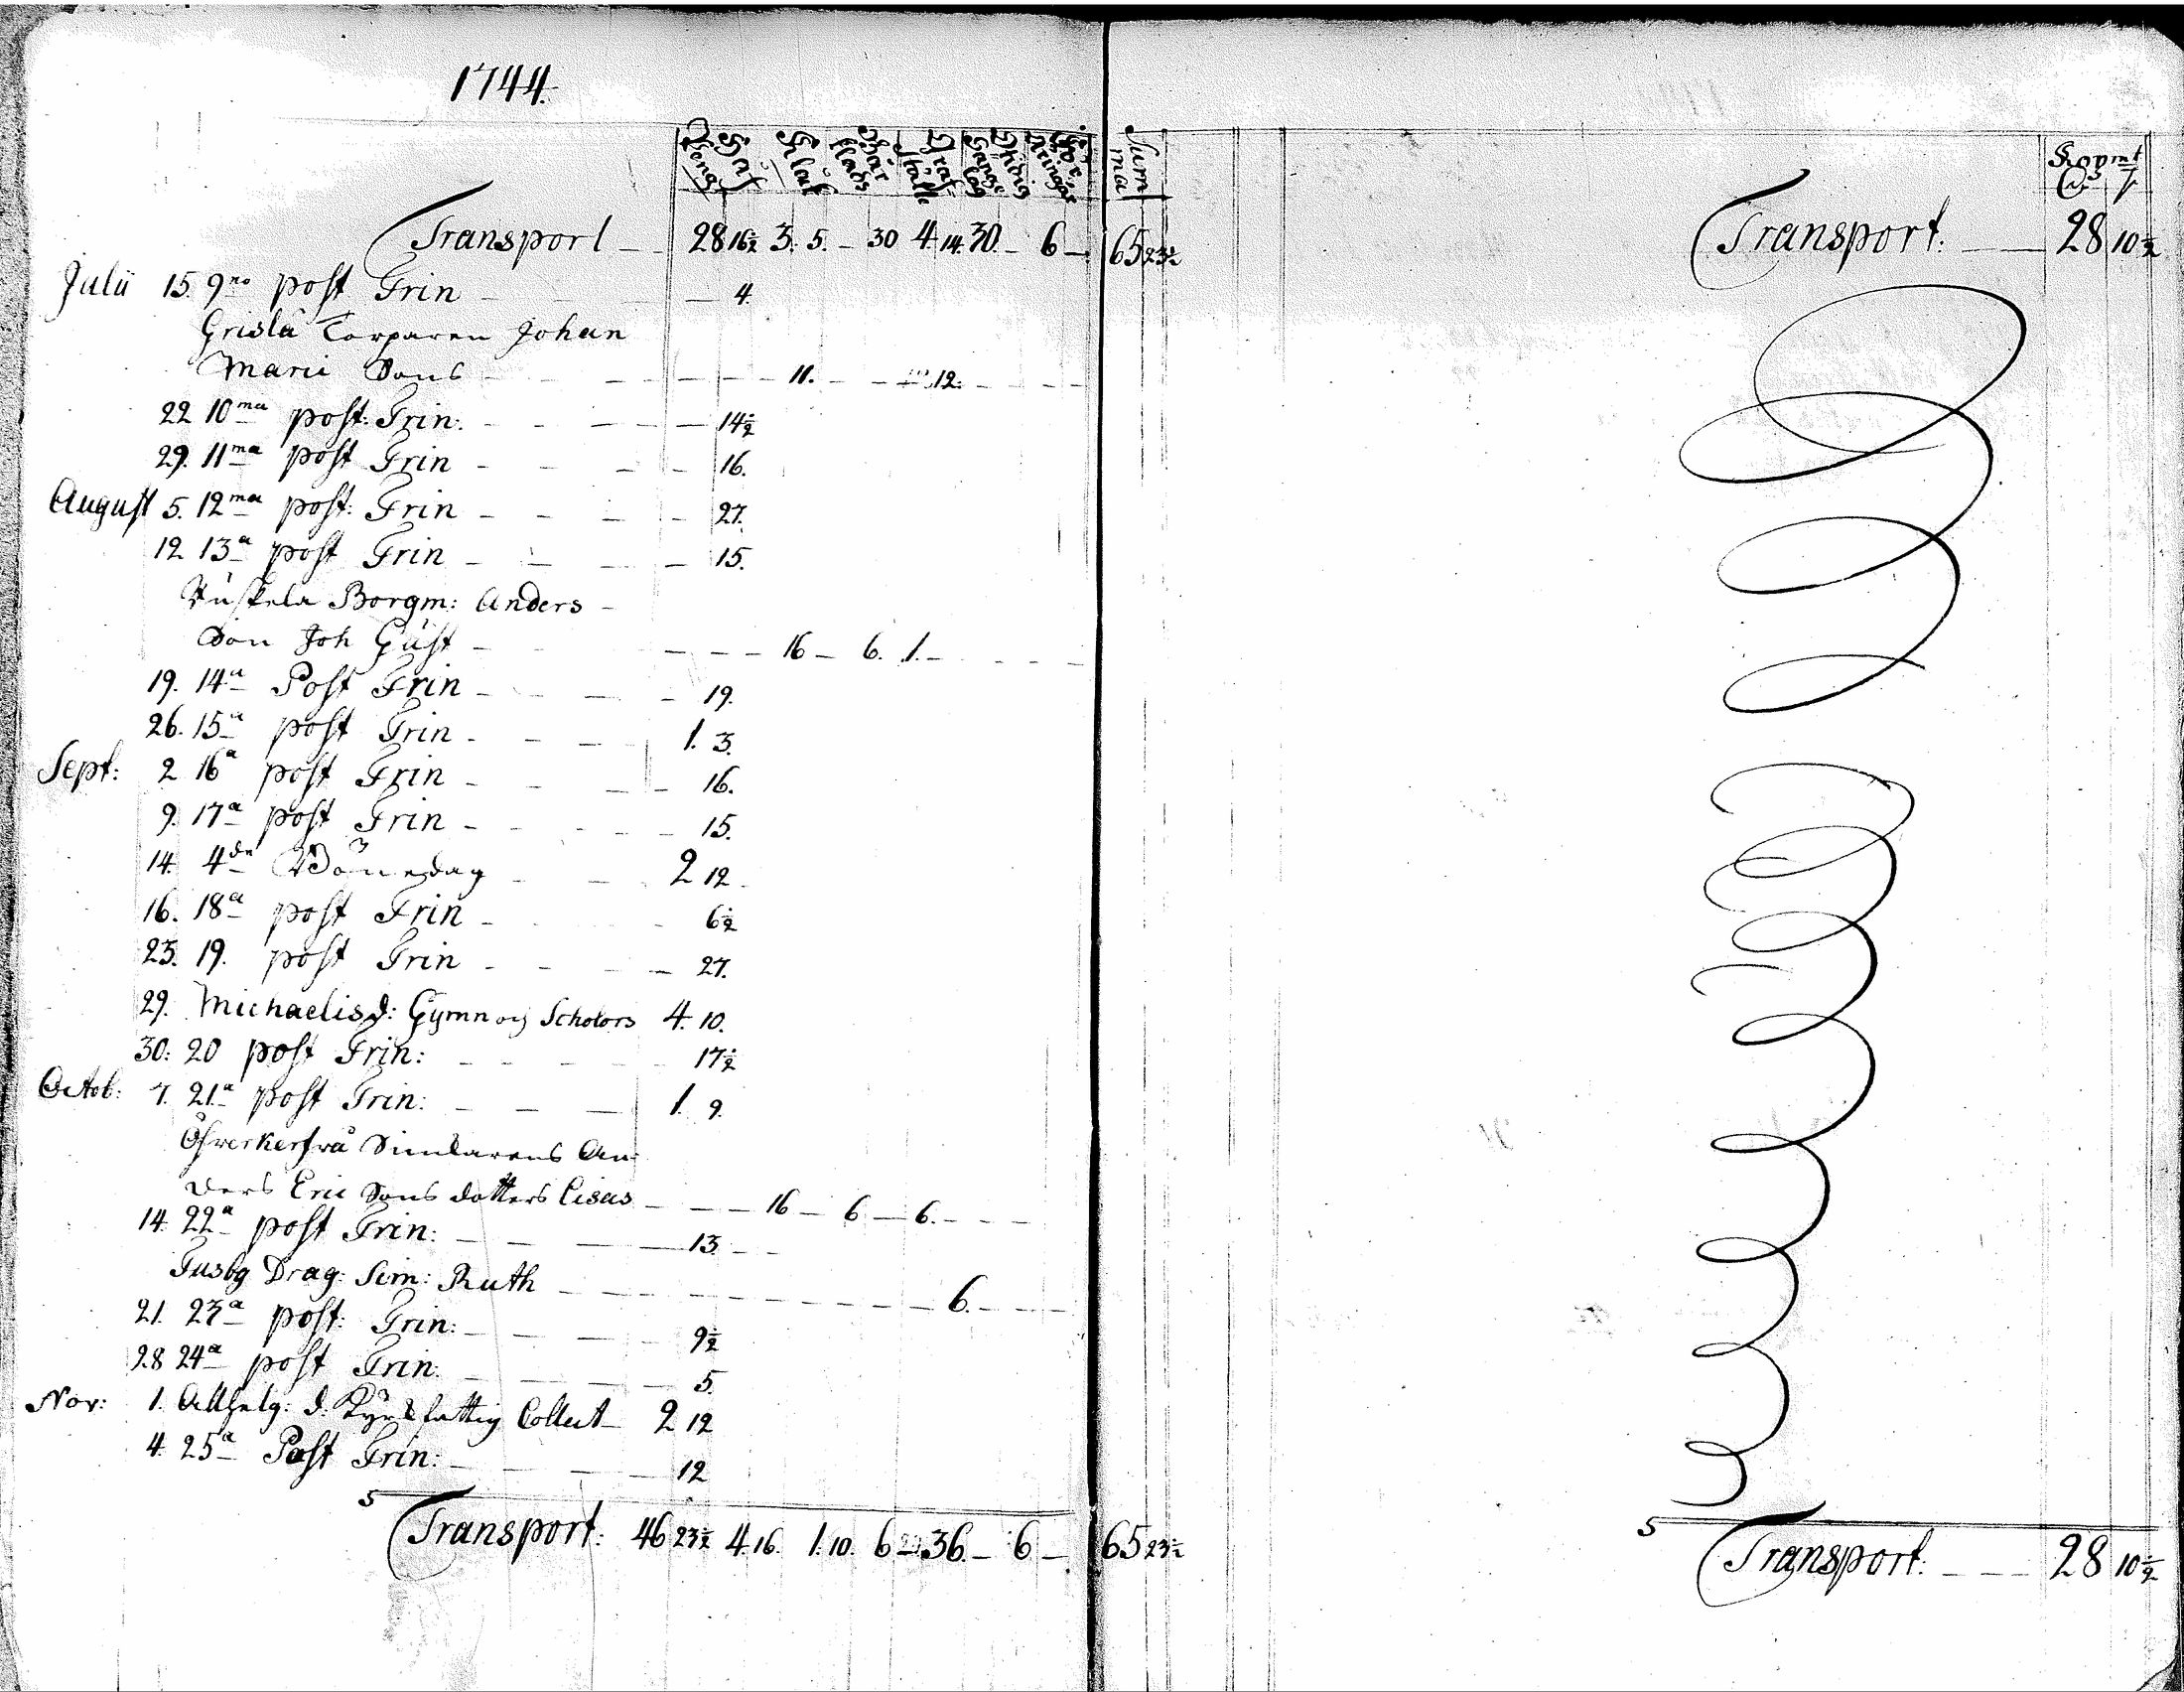 1744.
Sum ma
Transport 28 16½ 3. 5. 30 4 14. 30. 6 65 23½
Julii 15. 9no post Trin 4.
Grislä Torparen Johan
Marii Sons 11. 12.
22 10ma post: Trin: 14½
29. 11ma post Trin 16.
August 5. 12ma post: Trin 27.
12 13a post Trin 15.
Borgm: Anders
Son Joh Gust 16 6. 1.
19. 14a Post Trin 19.
26. 15a post Trin 1. 3.
Sept: 2 16a post Trin 16.
9. 17a post Trin 15.
14. 4de Bönedag 2 12
16. 18a post Trin 6½
23. 19. post Trin 27.
29. Michaelis d: Gymn och Scholors 4. 10.
30: 20 post Trin: 17½
Octob: 7. 21a post Trin: 1. 9.
An-
ders Eric Sons dotters Lisas 16 6 6.
14. 22a post Trin: 13.
Tusbg Drag: Sim: Ruth 6.
21. 23a post: Trin: 9½
28 24a post Trin: 5.
Nov: 1. Allhelg: d: fattig Collect 2 12
4. 25a Post Trin: 12
Transport: 46 23½ 4. 16. 1. 10. 6 36. 6 65 23½
Transport: 28 10½
Transport: 28 10½